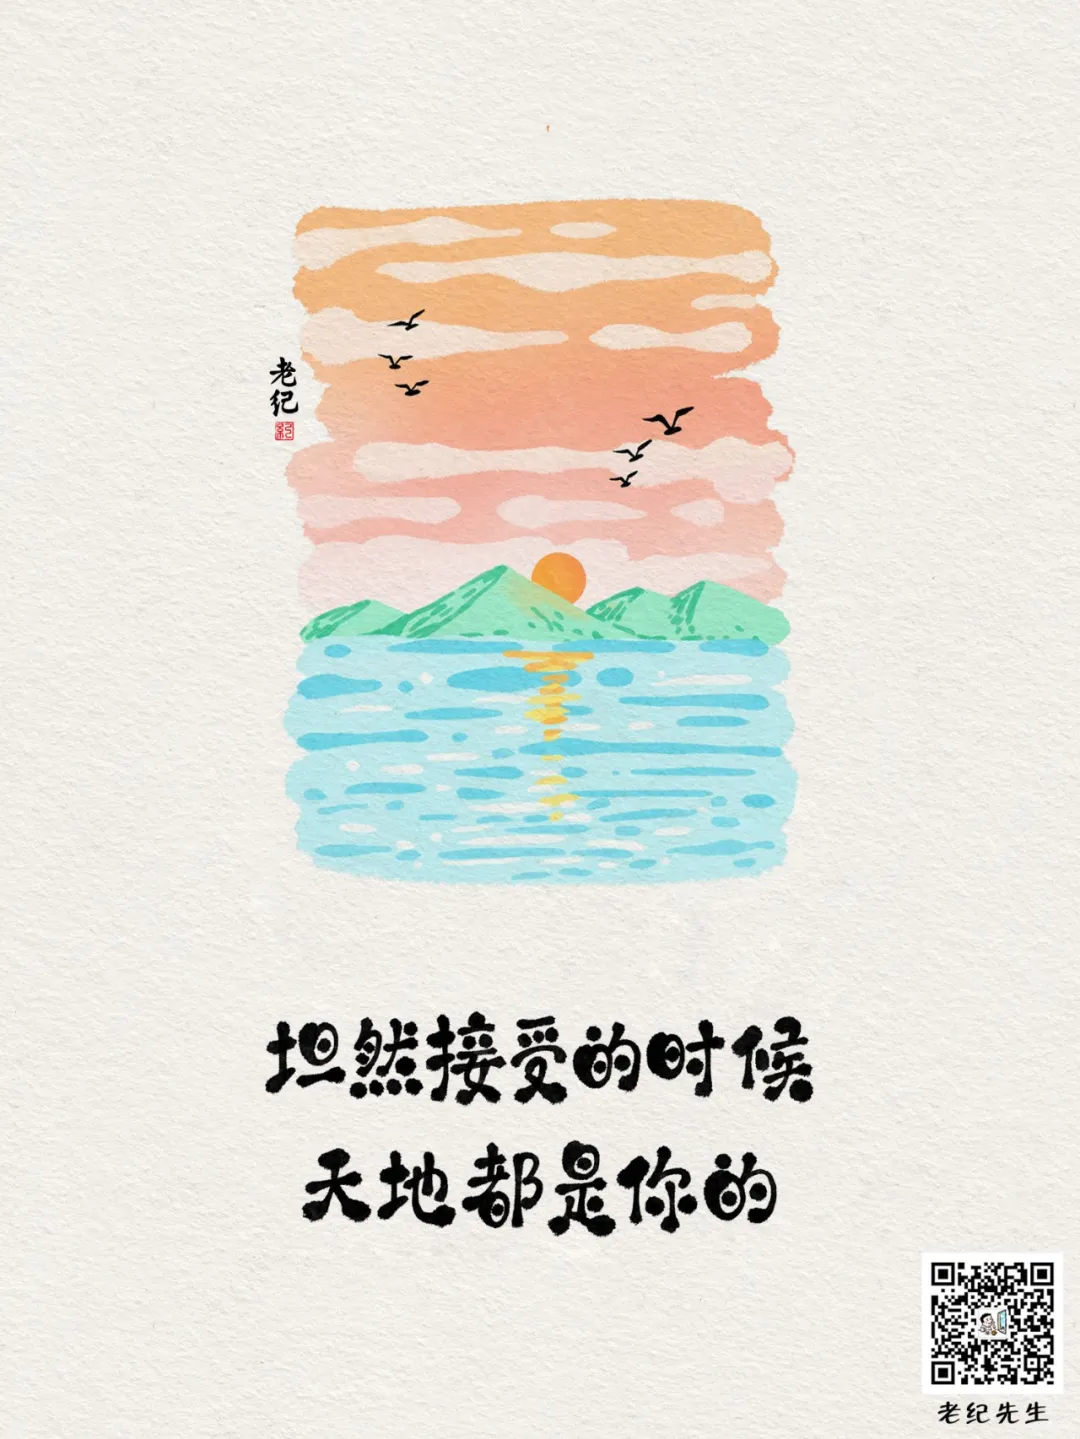 老纪
坦然接受的时候
天地都是你的
老纪先生